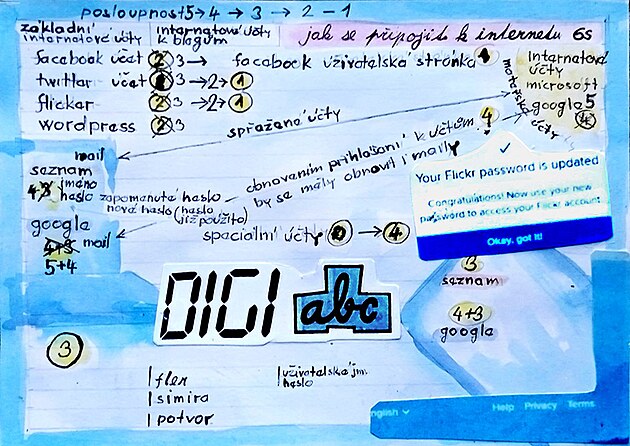 posloupnost 5→4 → 3 → 2 – 1
základní internetové účty
internetové účty k blogům
jak se připojit k internetu 6s
facebook účet 2 3 → facebook uživatelská stránka 4
twitter účet 3 → 2 → 1
flickar 3 → 2 → 1
wordpress 2 3
internetové
účty
microsoft
google 5
4
mateřské účty
spřažené účty
mail
seznam
4,3 jméno
heslo zapomenuté heslo
nové heslo (heslo
již použito)
obnovením přihlášení k účtům 4
by se měly obnovit i maily
google
4+3 mail
5+4
speciální účty → 4
Your Flickr password is updated
Congratulations! Now use your new
password to access your Flickr account
Okay, got it!
3
seznam
4+3
google
DIGI abc
3
flex
simira
potvor
uživatelské jm.
heslo
nglish
Help Privacy Terms